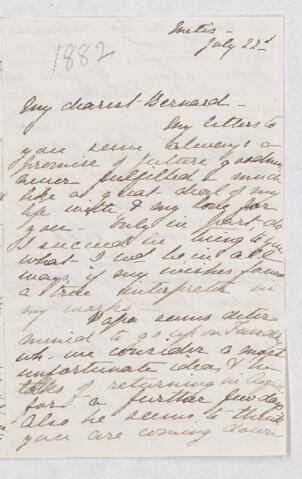 Metis -
July 22d
1882
My dearest Bernard -
My letters to
you seem always a
promise of future goodness
never fulfilled & much
like a great deal of my
life with & my love for
you - Only in part do
I succeed in being to you
what I wd be in all
ways, if my wishes found
a true interpreter in
my
Papa seems deter
mined to go up on Tuesday
wh. we consider a most
unfortunate idea & he
talks of returning in
for a further few days
also he seems to think
you are coming down